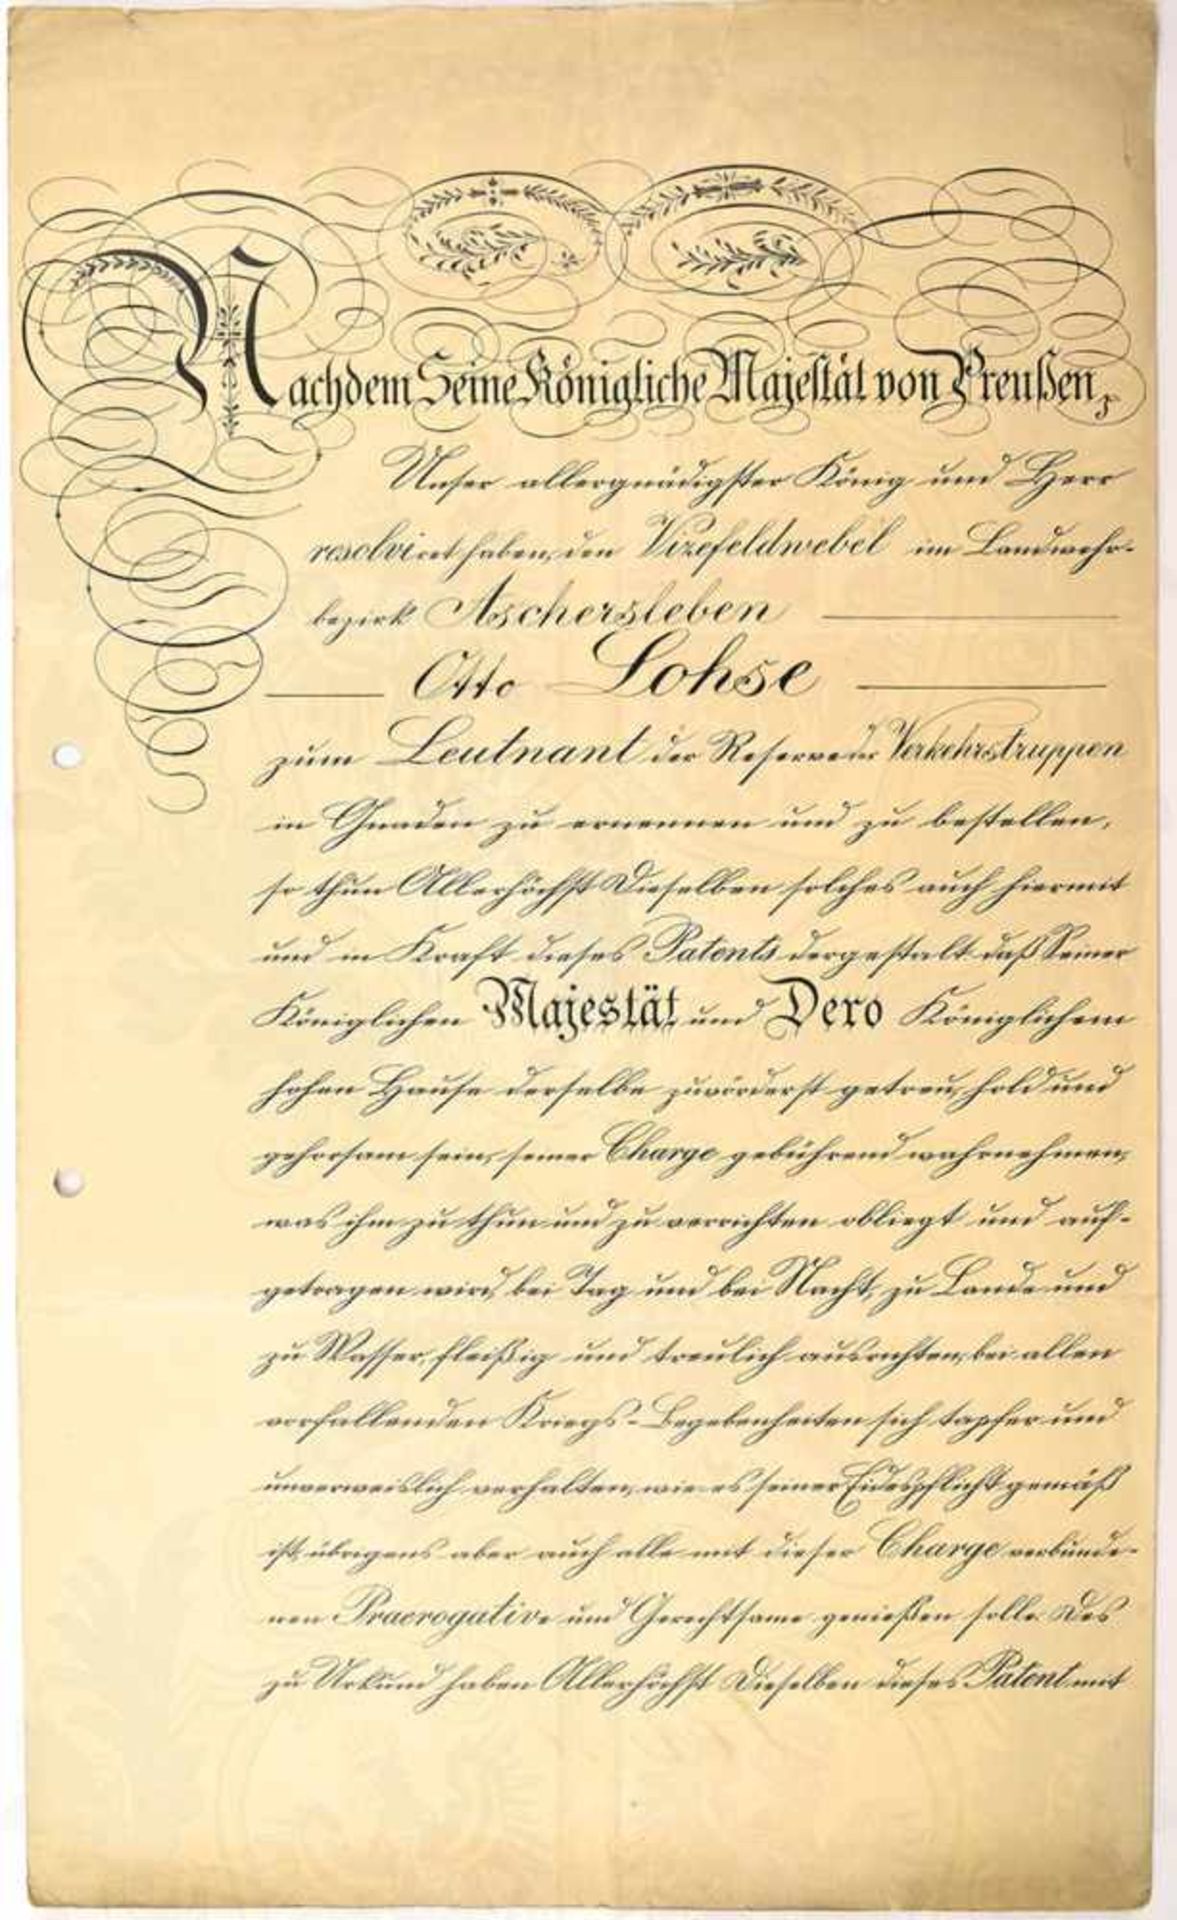 Nachdem Seine Königliche Majestät von Preußen,
Unser allergnädigster König und Herr
resolviret haben, den Vizefeldwebel im Landwehr-
bezirk Aschersleben
Otto Lohse
zum Leutnant der Reserve der Verkehrstruppen
in Gnaden zu ernennen und zu bestellen,
so thun Allerhöchst Dieselben solches auch hiermit
und in Kraft dieses Patents dergestalt, daß Seiner
Königlichen Majestät und Dero Königlichem
hohen Hause derselbe zuvörderst getreu, hold und
gehorsam sein, seiner Charge gebührend wahrnehmen,
was ihm zu thun und zu verrichten obliegt und auf-
getragen wird, bei Tag und bei Nacht, zu Lande und
zu Wasser, fleißig und treulich ausrichten, bei allen
vorfallenden Kriegs-Begebenheiten sich tapfer und
unverweislich verhalten, wie es seiner Eidespflicht gemäß
ist, übrigens aber auch alle mit dieser Charge verbunde-
nen Praerogative und Gerechtsame genießen solle. Des
zu Urkund haben Allerhöchst Dieselben dieses Patent mit